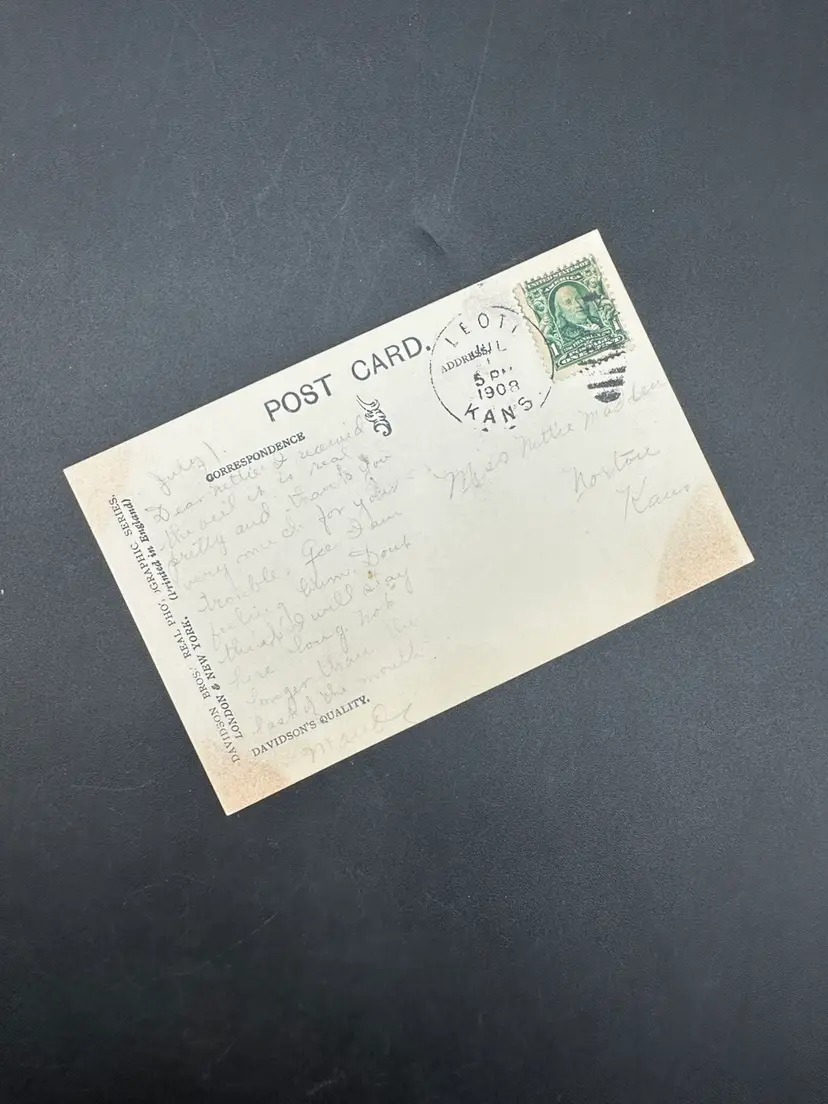 POST CARD.
CORRESPONDENCE
ADDRESS
LEOTI
JUL
1
5 PM
1908
KANS.
UNITED STATES OF
AMERICA
1 1
July 1.
Dear Nettie I received
the veil it is real
pretty and thank you
very much for your
trouble. Gee I am
feeling bum. Dont
think I will stay
here long. Not
longer than the
last of the month
Miss Nettie Madden
Norton
Kans
DAVIDSON BROS.' REAL PHOTOGRAPHIC SERIES.
LONDON & NEW YORK. (Printed in England)
DAVIDSON'S QUALITY.